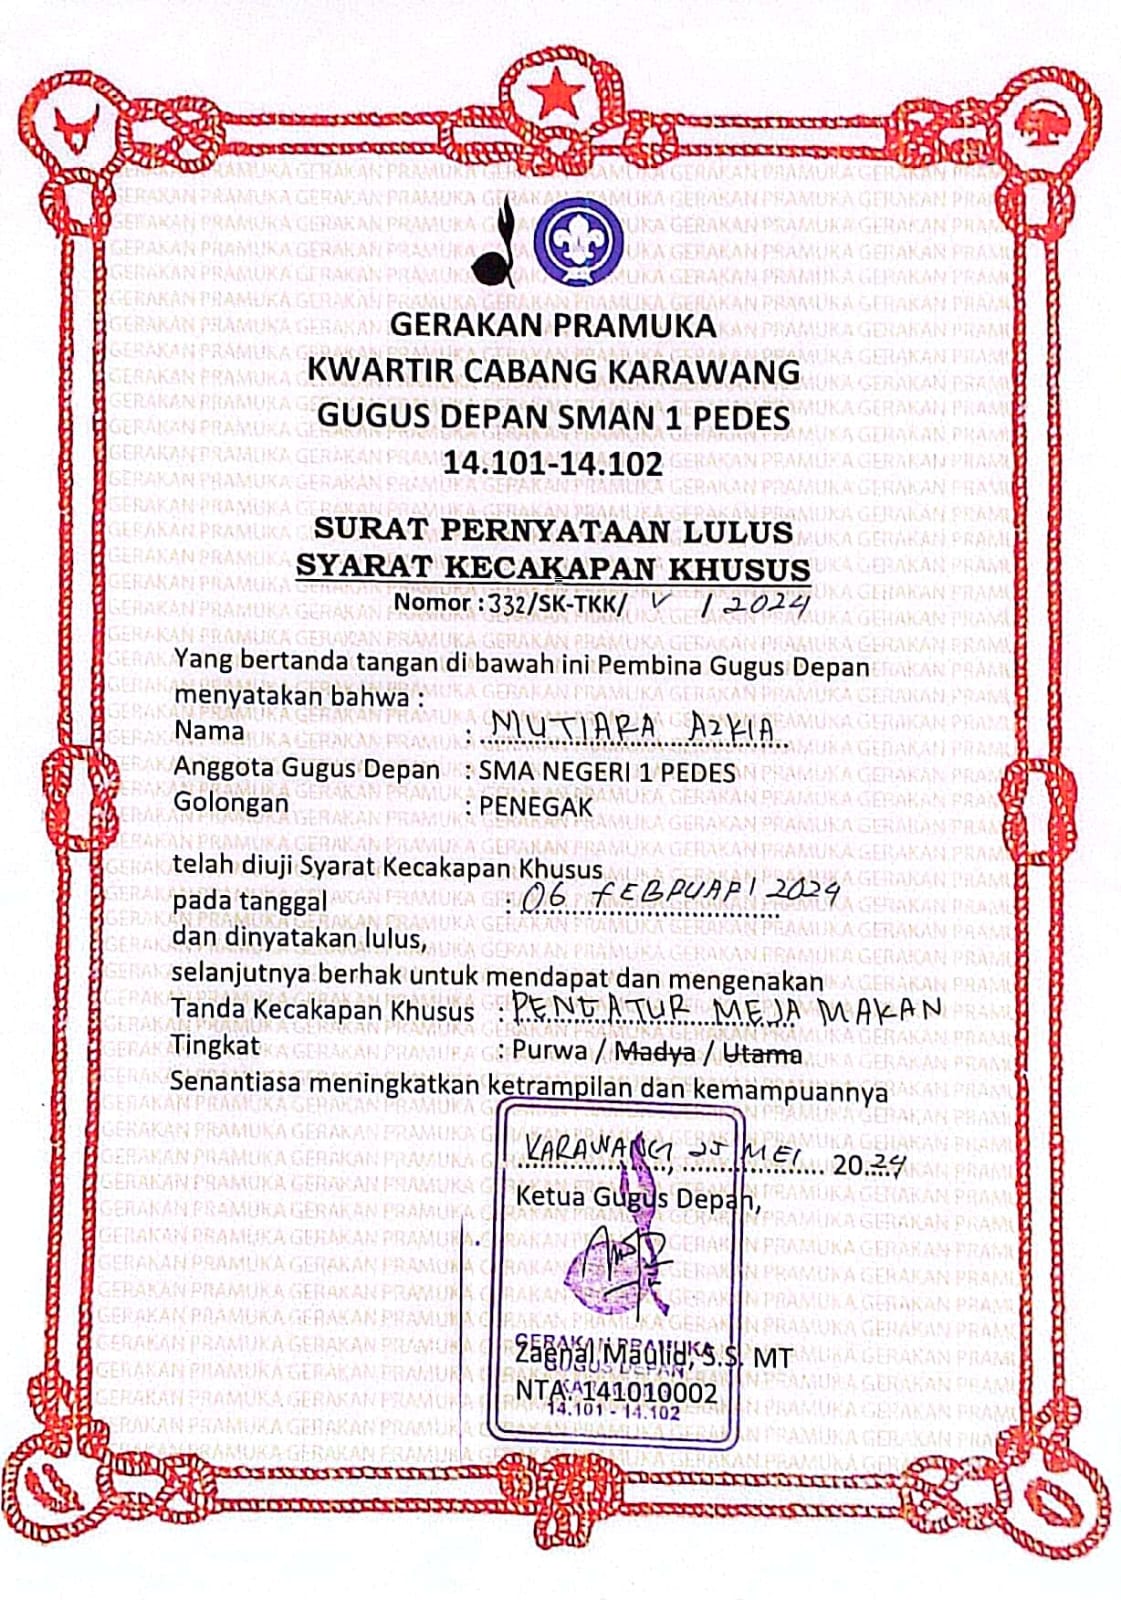 GERAKAN PRAMUKA
KWARTIR CABANG KARAWANG
GUGUS DEPAN SMAN 1 PEDES
14.101-14.102
SURAT PERNYATAAN LULUS
SYARAT KECAKAPAN KHUSUS
Nomor : 332/SK-TKK/ V / 2024
Yang bertanda tangan di bawah ini Pembina Gugus Depan
menyatakan bahwa :
Nama : MUTIARA AZKIA
Anggota Gugus Depan : SMA NEGERI 1 PEDES
Golongan : PENEGAK
telah diuji Syarat Kecakapan Khusus
pada tanggal : 06 FEBRUARI 2024
dan dinyatakan lulus,
selanjutnya berhak untuk mendapat dan mengenakan
Tanda Kecakapan Khusus : PENGATUR MEJA MAKAN
Tingkat : Purwa / Madya / Utama
Senantiasa meningkatkan ketrampilan dan kemampuannya
KARAWANG, 25 MEI 2024
Ketua Gugus Depan,
GERAKAN PRAMUKA
Zaenal Maulid, S.S. MT
GUGUS DEPAN
NTA. 141010002
14.101 - 14.102